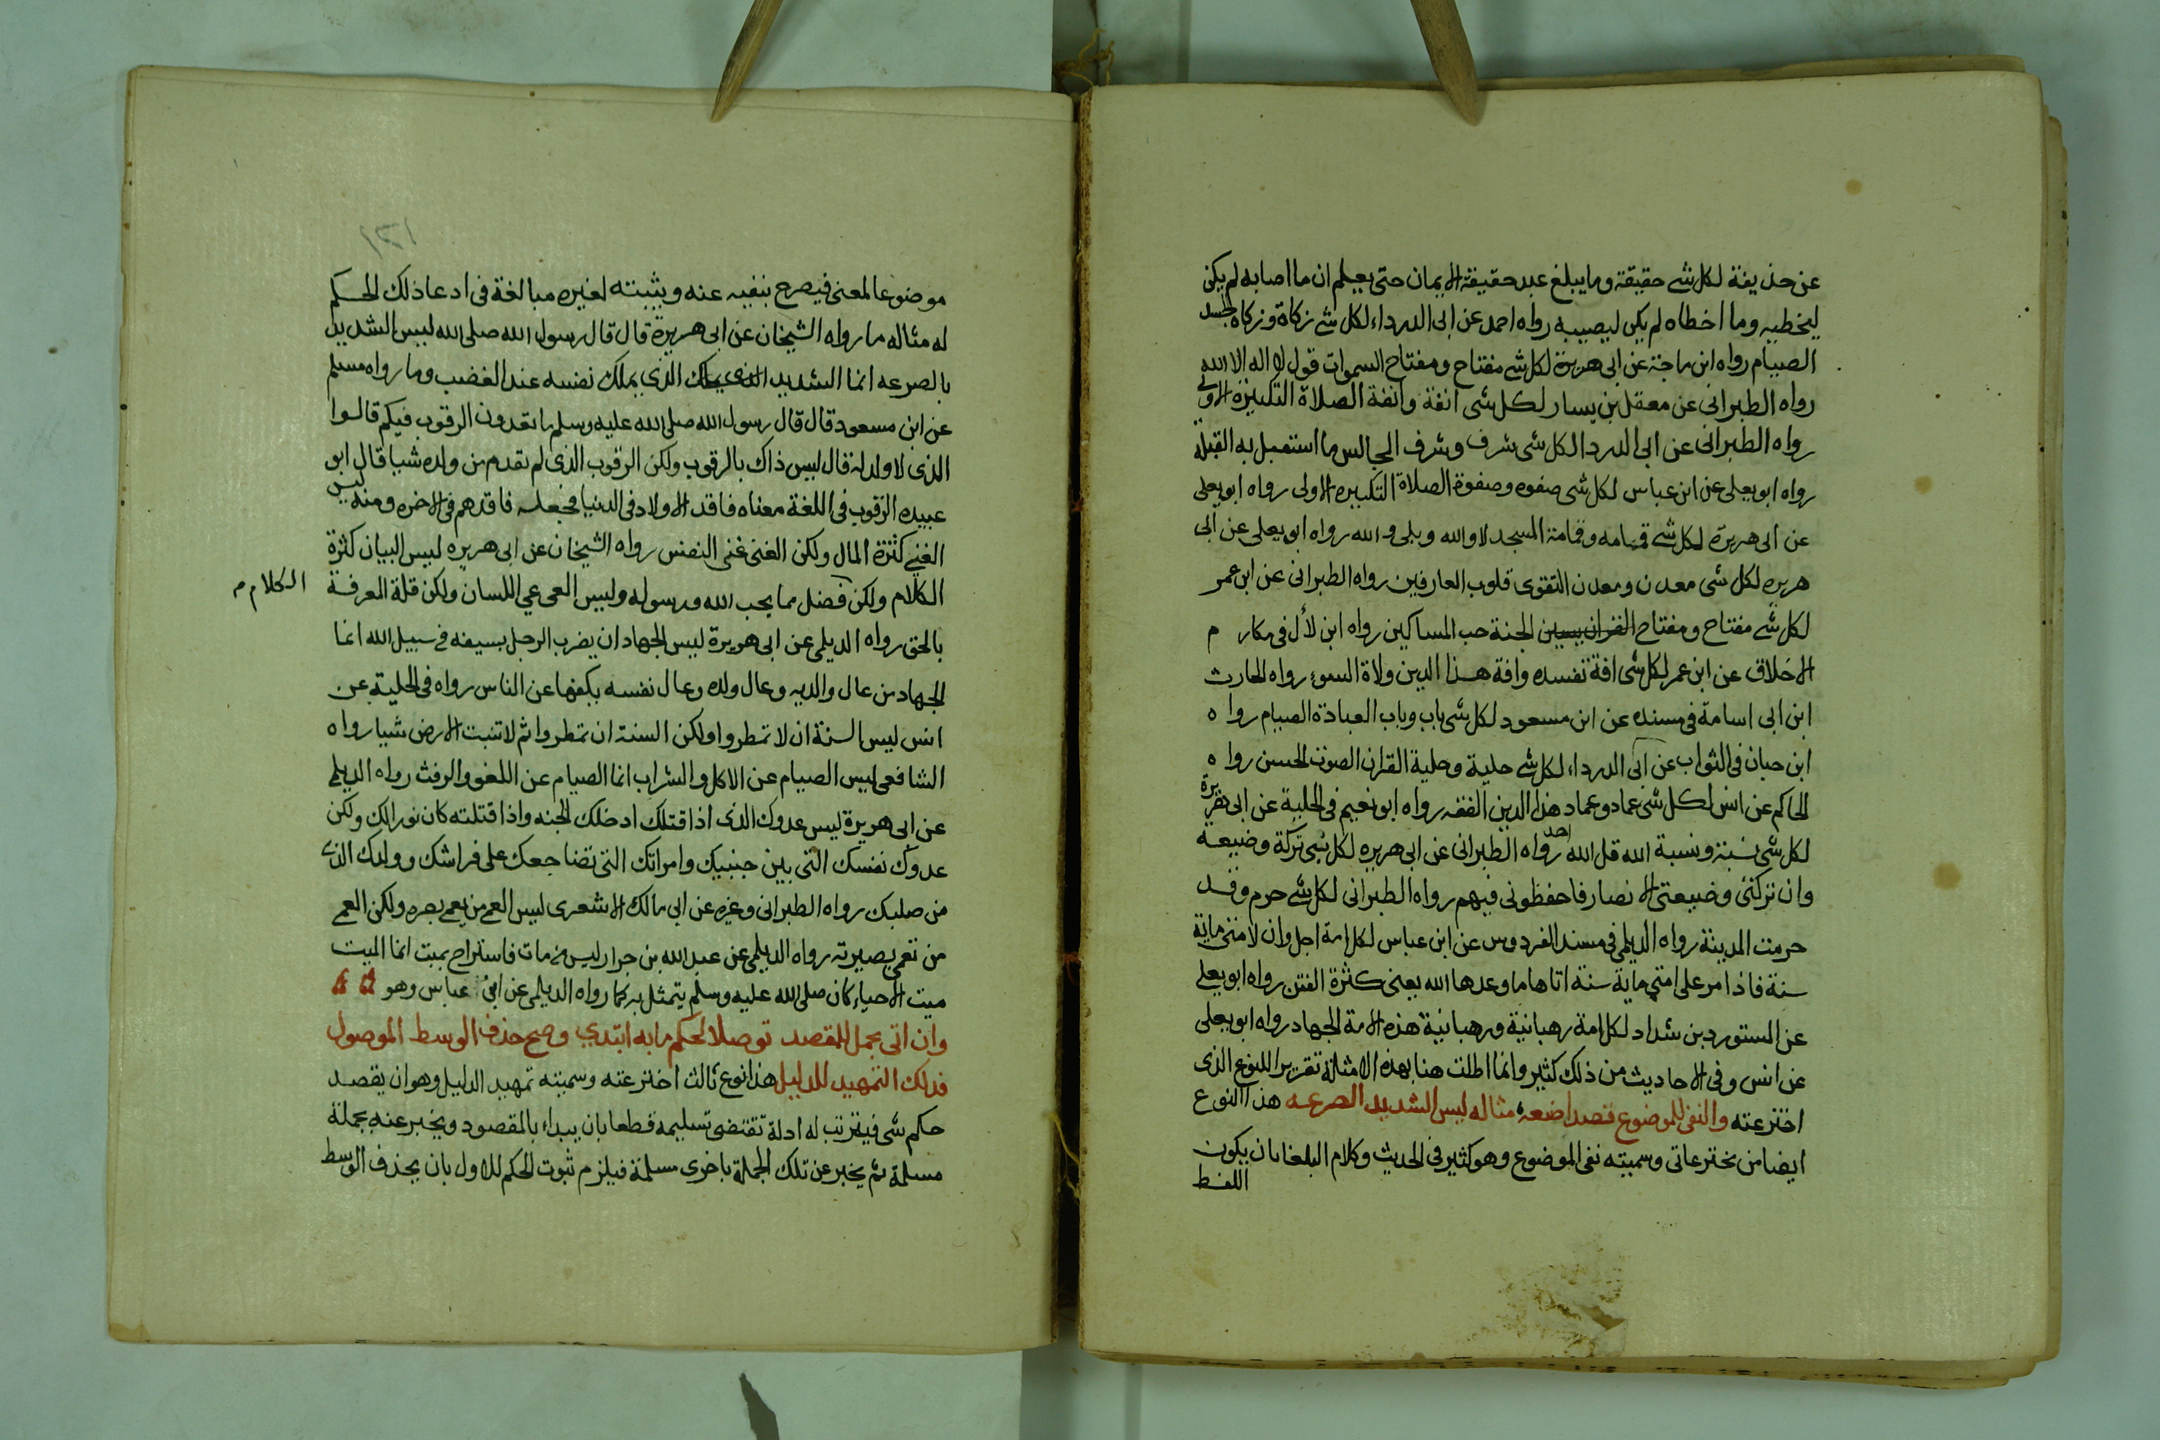 عن حذيفة لكل شي حقيقة وما يبلغ عبد حقيقة الايمان حتى يعلم ان ما اصابه لم يكن
ليخطيه وما اخطاه لم يكن ليصيبه رواه احمد عن ابى الدرداء لكل شي زكاة وزكاه الجسد
الصيام رواه ابن ماجة عن ابى هريرة لكل شي مفتاح ومفتاح السموات قول لا اله الا الله
رواه الطبرانى عن معقل بن يسار لكل شى انفة وانفة الصلاة التكبيرة الاولى
رواه الطبرانى عن ابى الدردا لكل شى شرف وشرف المجالس ما استقبل به القبلة
رواه ابو يعلى عن ابن عباس لكل شى صفوه وصفوة الصلاة التكبيره الاولى رواه ابو يعلى
عن ابى هريرة لكل شي قمامه وقمامة المسجد لا والله وبلى والله رواه ابو يعلى عن ابى
هريره لكل شى معدن ومعدن التقوى قلوب العارفين رواه الطبرانى عن ابن عمر
لكل شي مفتاح ومفتاح الجنة حب المساكين رواه ابن لأل فى مكارم
الاخلاق عن ابن عمر لكل شى افة تفسده وافة هذا الدين ولاة السوء رواه الحارث
ابن ابى اسامة فى مسنده عن ابن مسعود لكل شى باب وباب العبادة الصيام رواه
ابن حبان فى الثواب عن ابى الدرداء لكل شي حلية وحلية القران الصوت الحسن رواه
الحاكم عن انس لكل شى عماد وعماد هذا الدين الفقه رواه ابو نعيم فى الحلية عن ابى هريرة
لكل شى نسبة ونسبة الله قل الله احد رواه الطبرانى عن ابى هريره لكل نبى تركة وضيعة
وان تركتى وضيعتى الانصار فاحفظونى فيهم رواه الطبرانى لكل شي حرم وقد
حرمت المدينة رواه الديلمى فى مسند الفردوس عن ابن عباس لكل امة اجل وان لامتى ماية
سنة فاذا مر على امتى ماية سنة اتاها ما وعدها الله يعنى كثرة الفتن رواه ابو يعلى
عن المستورد بن شداد لكل امة رهبانية ورهبانية هذه الامة الجهاد رواه ابو يعلى
عن انس وفى الاحاديث من ذلك كثير وانما اطلت هنا بهذه الامثلة تقريرا للنوع الذى
اخترعته والنفى للموضوع قصدا ضعه مثاله ليس الشديد الصرعه هذا النوع
ايضا من مخترعاتى وسميته نفى الموضوع وهو كثير فى الحديث وكلام البلغا بان يكون
اللفظ
١٣١
موضوعا لمعنى فيصرح بنفيه عنه ويثبته لغيره مبالغة فى ادعا ذلك الحكم
له مثاله ما رواه الشيخان عن ابى هريرة قال قال رسول الله صلى الله ليس الشديد
بالصرعه انما الشديد الذى يملك نفسه عند الغضب وما رواه مسلم
عن ابن مسعود قال قال رسول الله صلى الله عليه وسلم ما تعدون الرقوب فيكم قالوا
الذى لا ولد له قال ليس ذاك بالرقوب ولكن الرقوب الذى لم يقدم من ولده شيا قال ابو
عبيده الرقوب فى اللغة معناه فاقد الاولاد فى الدنيا فجعله فاقدهم فى الاخره ومنه ليس
الغنى كثرة المال ولكن الغنى غنى النفس رواه الشيخان عن ابى هريره ليس البيان كثرة
الكلام ولكن فضل مما يحب الله ورسوله وليس العى عي اللسان ولكن قلة المعرفة
الكلام م
بالحق رواه الديلمى عن ابى هريرة ليس الجهاد ان يضرب الرجل بسيفه فى سبيل الله انما
الجهاد من عال والديه وعال ولده وعال نفسه يكفها عن الناس رواه فى الحلية عن
انس ليس السنة ان لا تمطروا ولكن السنة ان تمطروا ثم لا تنبت الارض شيا رواه
الشافعى ليس الصيام عن الاكل والشراب انما الصيام عن اللغو والرفث رواه الديلمى
عن ابى هريرة ليس عدوك الذى اذا قتلك ادخلك الجنه واذا قتلته كان نورا لك ولكن
عدوك نفسك التى بين جنبيك وامراتك التى تضاجعك على فراشك وولدك الذى
من صلبك رواه الطبرانى وغيره عن ابى مالك الاشعرى ليس العمى من يعمى بصره ولكن العمى
من تعمى بصيرته رواه الديلمى عن عبد الله بن جراد ليس من مات فاستراح بميت انما الميت
ميت الاحياء كان صلى الله عليه وسلم يتمثل به كما رواه الديلمى عن ابن عباس وهو
وان اتى بجمل للمقصد توصلا لحكم ما به ابتدي وصح حذف الوسط الموصول
فذلك التمهيد للدليل هذا نوع ثالث اخترعته وسميته تمهيد الدليل وهو ان يقصد
حكم شى فيترتب له ادلة تقتضى تسليمه قطعا بان يبداء بالمقصود ويخبر عنه بجملة
مسلمة ثم يخبر عن تلك الجملة باخرى مسلمة فيلزم ثبوت الحكم للاول بان يحذف الوسط